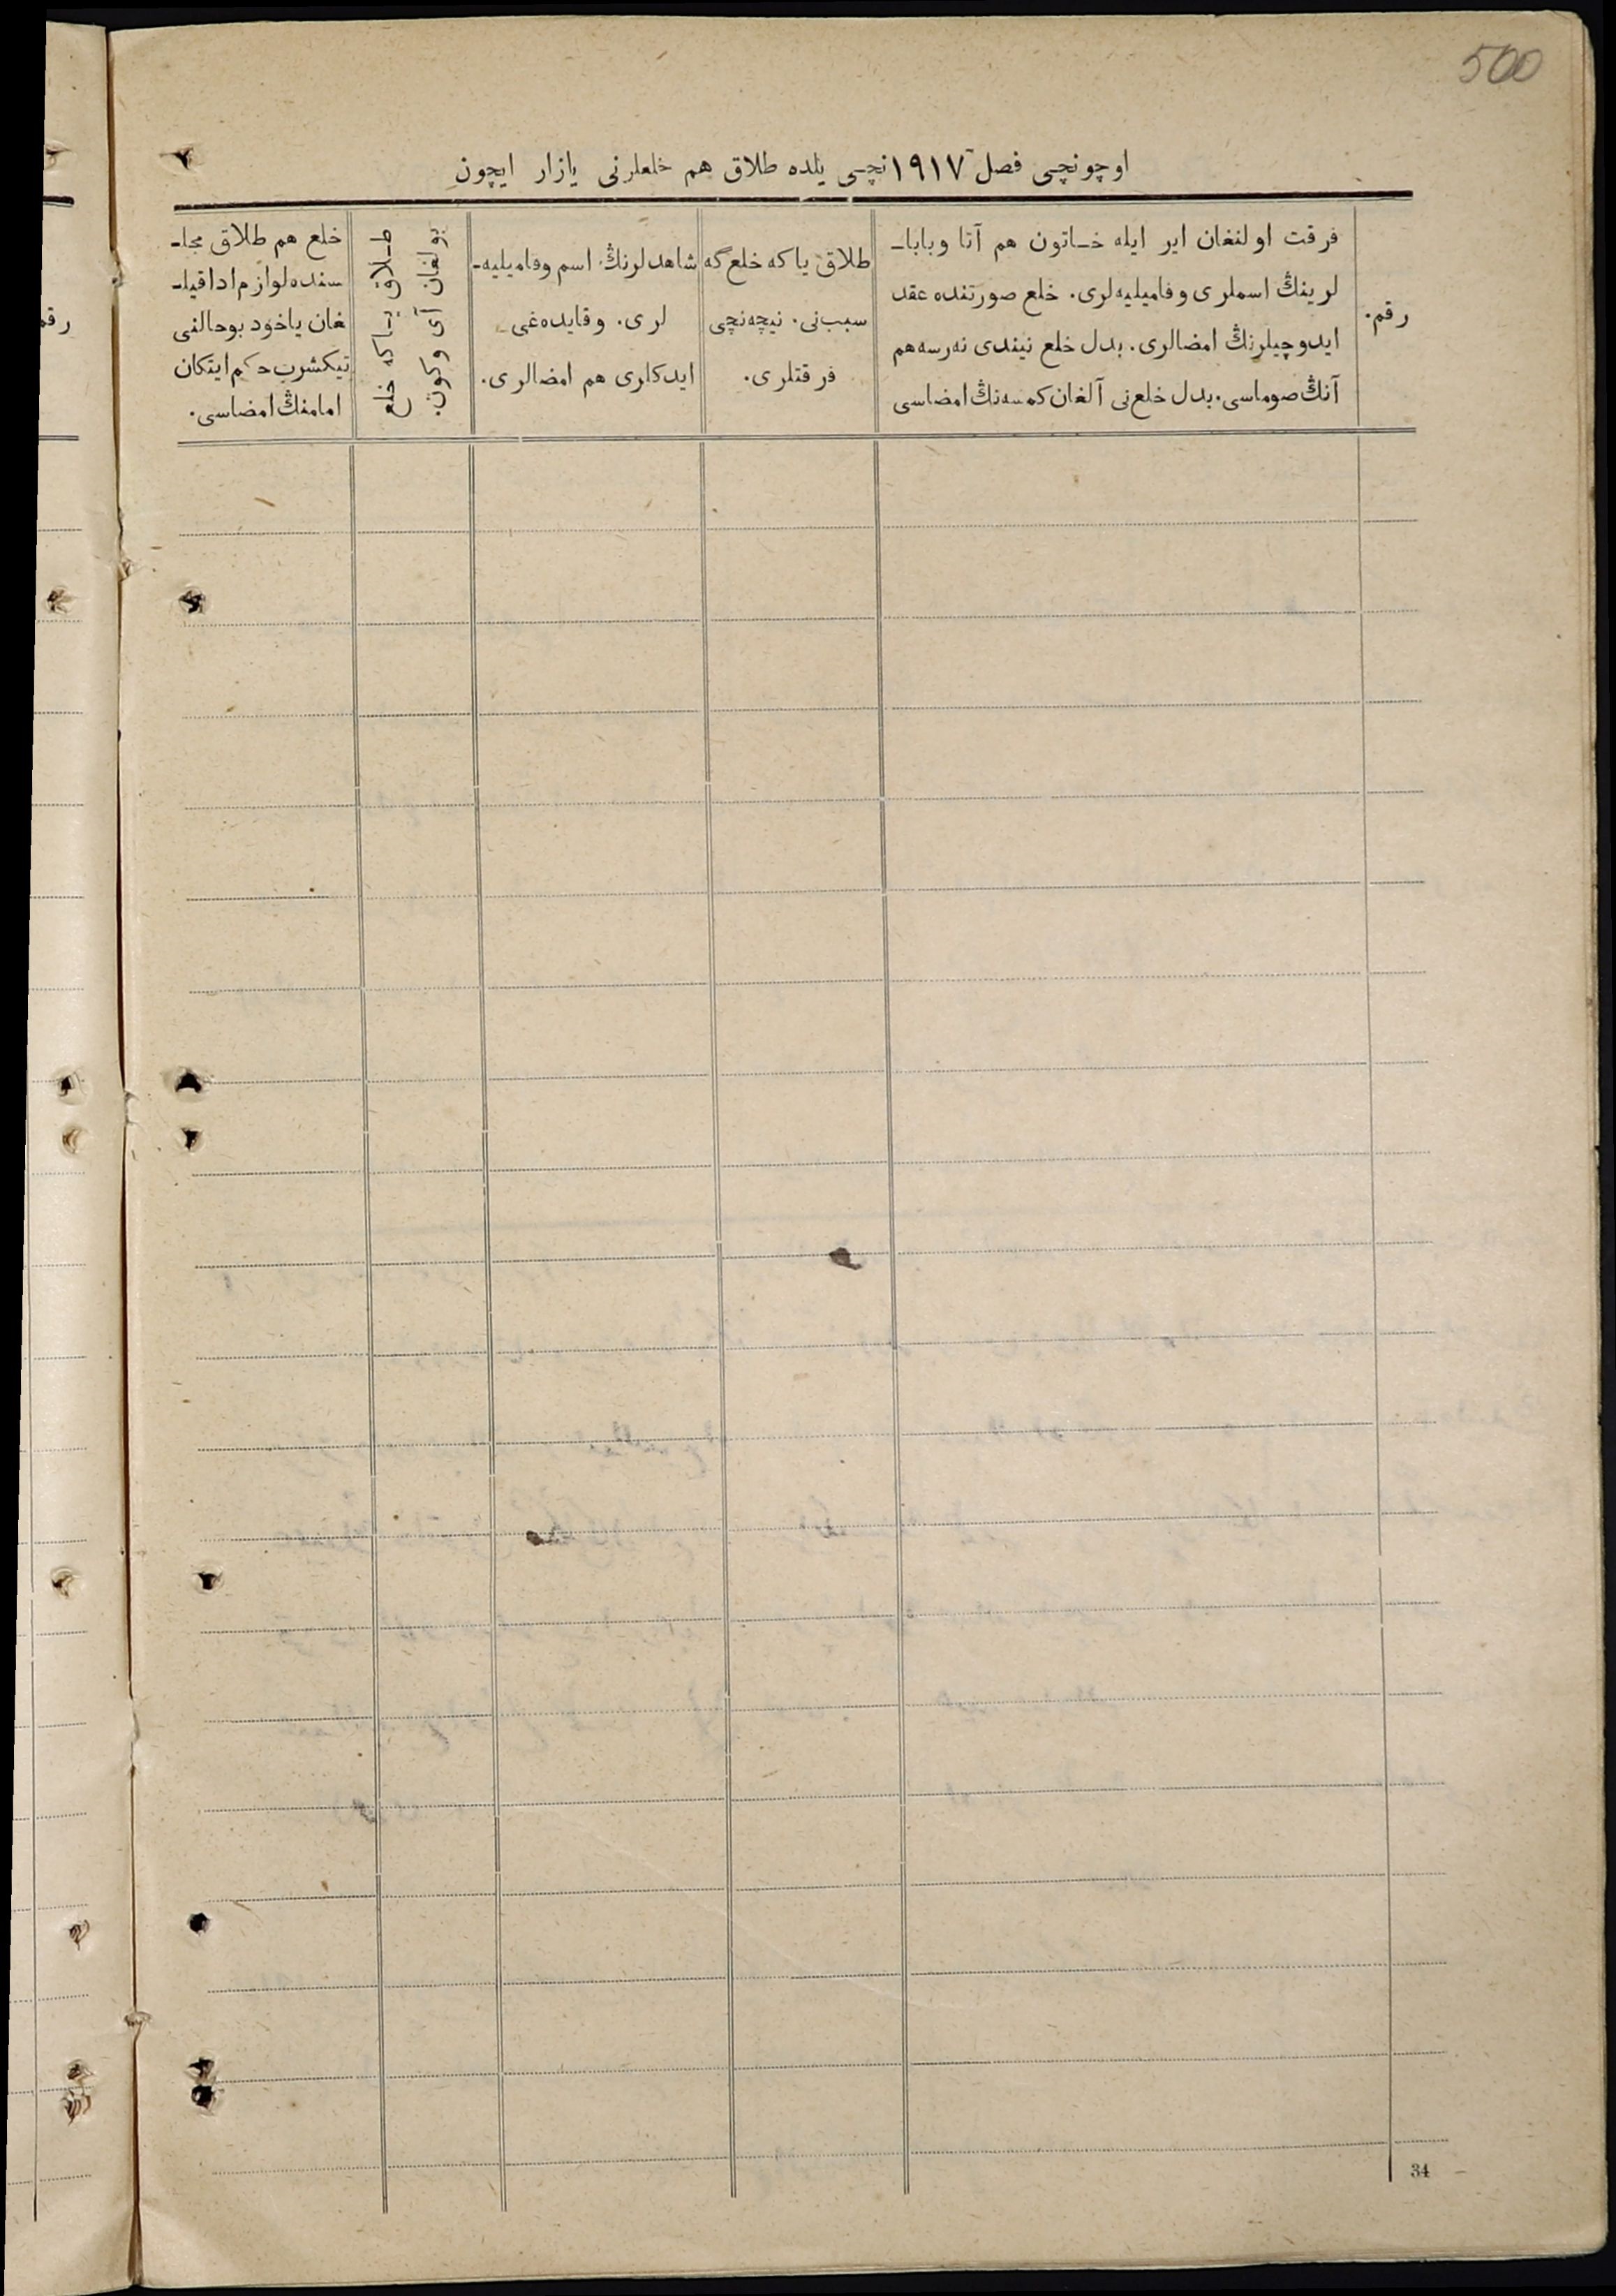 500
اوچونچی فصل ۱۹۱۷ نچی یلده طلاق هم خلعلرنی یازار ایچون
رقم.
فرقت اولنغان ایر ایله خاتون هم آتا وبابا-
لرینڭ اسملری وفامیلیه‌لری. خلع صورتنده عقد
ایدوچیلرنڭ امضالری. بدل خلع نیندی نه‌رسه هم
آنڭ صوماسی. بدل خلع‌نی آلغان کمسه‌نڭ امضاسی
طلاق یا که خلع گه
سبب‌نی. نیچه‌نچی
فرقتلری.
شاهدلرنڭ اسم وفامیلیه-
لری. وقایده‌غی
ایدکلری هم امضالری.
طلاق یا که خلع
بولغان آی وکون.
خلع هم طلاق مجلـ-
سنده لوازم ادا قیلـ-
غان یاخود بو حالنی
تیکشرب حکم ایتکان
امامنڭ امضاسی.
رقم
34